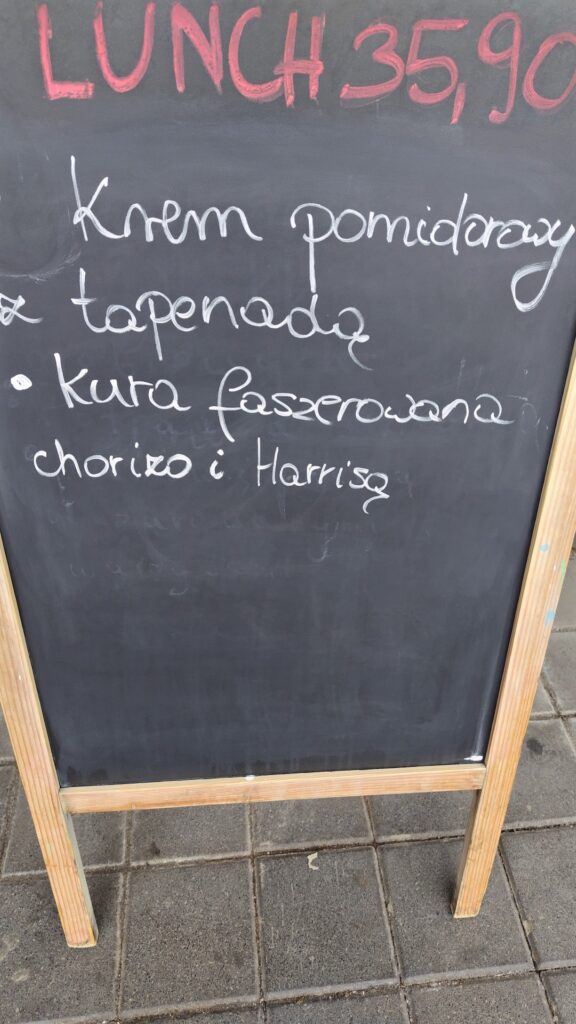 LUNCH 35,90
Krem pomidorowy
z tapenadą
• Kura faszerowana
chorizo i Harrisą